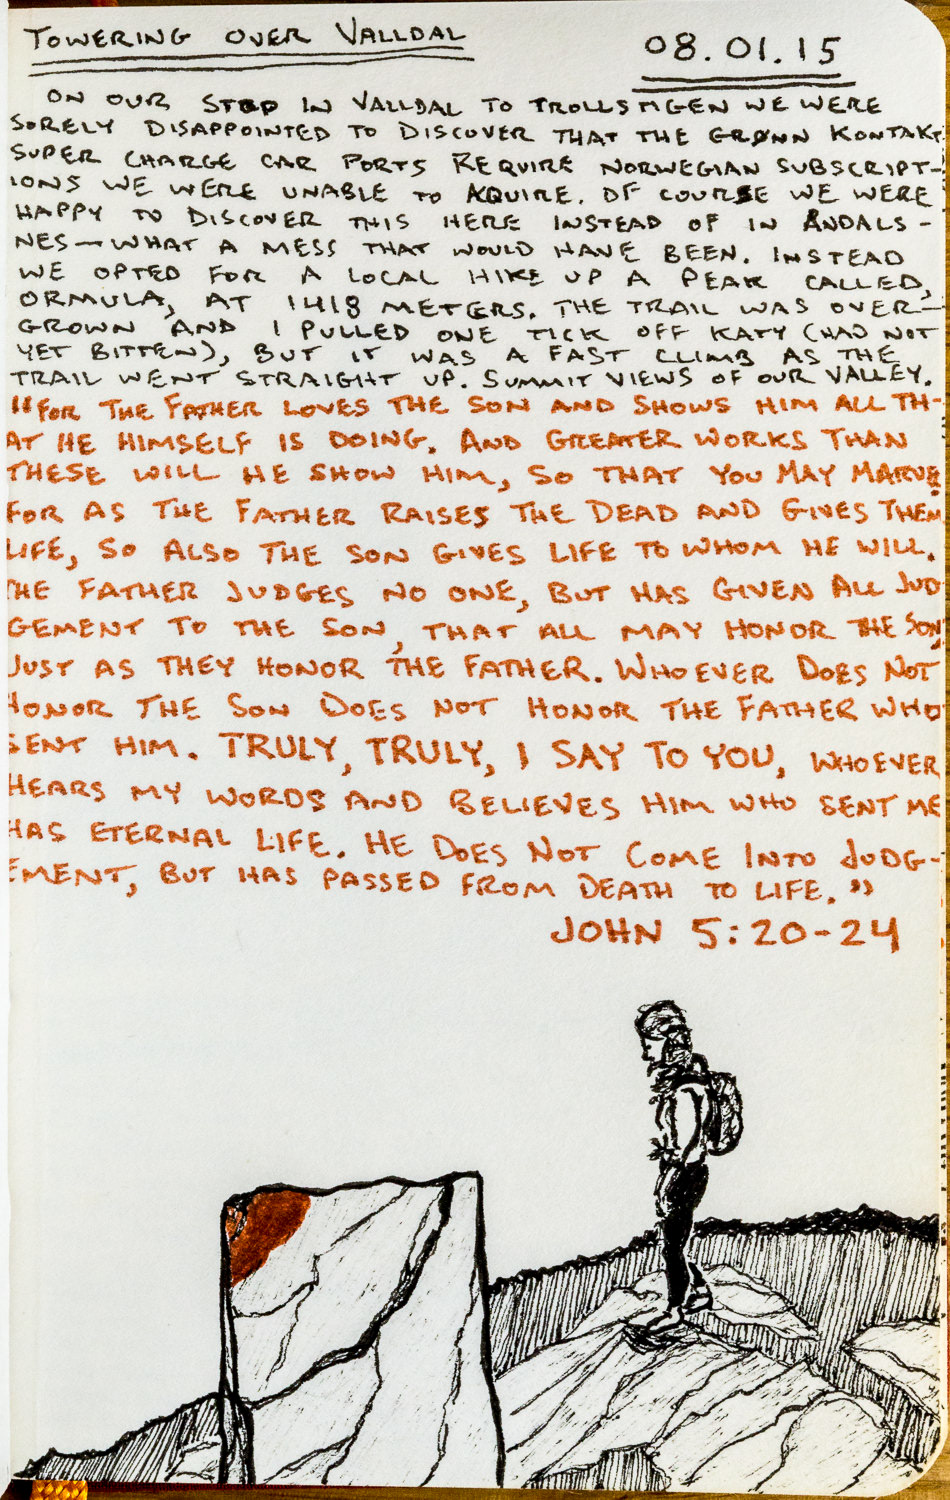 TOWERING OVER VALLDAL
08.01.15
ON OUR STOP IN VALLDAL TO TROLLSTIGEN WE WERE
SORELY DISAPPOINTED TO DISCOVER THAT THE GRØNN KONTAKT
SUPER CHARGE CAR PORTS REQUIRE NORWEGIAN SUBSCRIPT-
IONS WE WERE UNABLE TO AQUIRE. OF COURSE WE WERE
HAPPY TO DISCOVER THIS HERE INSTEAD OF IN ÅNDALS-
NES—WHAT A MESS THAT WOULD HAVE BEEN. INSTEAD
WE OPTED FOR A LOCAL HIKE UP A PEAK CALLED,
ORMULA, AT 1418 METERS. THE TRAIL WAS OVER-
GROWN AND I PULLED ONE TICK OFF KATY (HAD NOT
YET BITTEN), BUT IT WAS A FAST CLIMB AS THE
TRAIL WENT STRAIGHT UP. SUMMIT VIEWS OF OUR VALLEY.
"FOR THE FATHER LOVES THE SON AND SHOWS HIM ALL TH-
AT HE HIMSELF IS DOING. AND GREATER WORKS THAN
THESE WILL HE SHOW HIM, SO THAT YOU MAY MARVEL.
FOR AS THE FATHER RAISES THE DEAD AND GIVES THEM
LIFE, SO ALSO THE SON GIVES LIFE TO WHOM HE WILL.
THE FATHER JUDGES NO ONE, BUT HAS GIVEN ALL JUD
GEMENT TO THE SON, THAT ALL MAY HONOR THE SON,
JUST AS THEY HONOR THE FATHER. WHOEVER DOES NOT
HONOR THE SON DOES NOT HONOR THE FATHER WHO
SENT HIM. TRULY, TRULY, I SAY TO YOU, WHOEVER
HEARS MY WORDS AND BELIEVES HIM WHO SENT ME
HAS ETERNAL LIFE. HE DOES NOT COME INTO JUDG-
EMENT, BUT HAS PASSED FROM DEATH TO LIFE."
JOHN 5:20-24